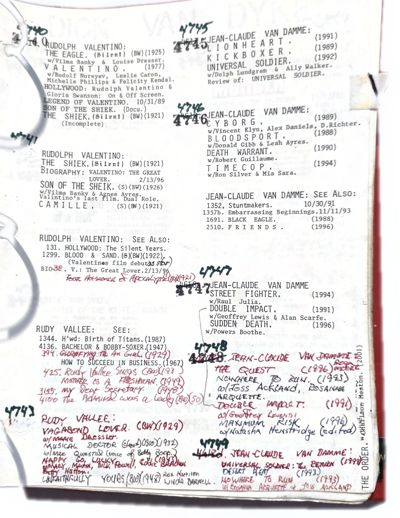 4740
RUDOLPH VALENTINO:
THE EAGLE. (Silent) (BW)(1925)
w/Vilma Banky & Louise Dresser.
VALENTINO. (1977)
w/Rudolf Nureyev, Leslie Caron,
Michelle Phillips & Felicity Kendal.
HOLLYWOOD: Rudolph Valentino &
Gloria Swanson: On & Off Screen.
LEGEND OF VALENTINO. 10/31/89
SON OF THE SHEIK. (Docu.)
THE SHEIK. (Silent)(BW)(1921)
(Incomplete)
4741
RUDOLPH VALENTINO:
THE SHEIK.(Silent)(BW)(1921)
BIOGRAPHY: VALENTINO: THE GREAT
LOVER. 2/13/96
SON OF THE SHEIK.(S)(BW)(1926)
w/Vilma Banky & Agnes Ayres.
Valentino's last film. Dual Role.
CAMILLE. (S)(BW)(1921)
RUDOLPH VALENTINO: SEE ALSO:
131. HOLLYWOOD: The Silent Years.
1299. BLOOD & SAND.(S)(BW)(1922)
(Valentino film debut
V.: The Great Lover.2/13/96
Four Horsemen of Apocalypse(BW)(1921)
RUDY VALLEE: SEE:
1344. H'wd: Birth of Titans.(1987)
4136. BACHELOR & BOBBY-SOXER.(1947)
394. Glorifying the Am. Girl (1929)
HOW TO SUCCEED IN BUSINESS.(1967)
425. Rudy Vallee Sings (BW)
Mother is a Freshman (1949)
My Dear Secretary
4100 The Palm
4743
RUDY VALLEE:
VAGABOND LOVER. (BW)(1929)
w/Marie Dressler.
MUSICAL DOCTOR (Short)(BW)(1932)
w/Mae Questel (voice of Betty Boop)
HAPPY GO LUCKY (1943)
w/Mary Martin, Dick Powell, Eddie Bracken
Betty Hutton.
UNFAITHFULLY YOURS (BW)(1948) Rex Harrison
Linda Darnell
4745
4745
JEAN-CLAUDE VAN DAMME:
LIONHEART. (1991)
KICKBOXER. (1989)
UNIVERSAL SOLDIER. (1992)
w/Dolph Lundgren & Ally Walker.
Review of: UNIVERSAL SOLDIER.
4746
4746
JEAN-CLAUDE VAN DAMME:
CYBORG. (1989)
w/Vincent Klyn, Alex Daniels, D.Richter.
BLOODSPORT. (1988)
w/Donald Gibb & Leah Ayres.
DEATH WARRANT. (1990)
w/Robert Guillaume.
TIMECOP. (1994)
w/Ron Silver & Mia Sara.
JEAN-CLAUDE VAN DAMME: SEE ALSO:
1352. Stuntmakers. 10/30/91
1357b. Embarrassing Beginnings.11/11/93
1691. BLACK EAGLE. (1988)
2510. FRIENDS. (1996)
4747
4747
JEAN-CLAUDE VAN DAMME:
STREET FIGHTER. (1994)
w/Raul Julia.
DOUBLE IMPACT. (1991)
w/Geoffrey Lewis & Alan Scarfe.
SUDDEN DEATH. (1996)
w/Powers Boothe.
4748
4748
JEAN-CLAUDE VAN DAMME
THE QUEST (1996)
NOWHERE TO RUN. (1993)
w/Joss Ackland, Rosanna
Arquette.
DOUBLE IMPACT. (1991)
w/Geoffrey Lewis
MAXIMUM RISK (1996)
w/Natasha Henstridge (edited)
4749
JEAN-CLAUDE VAN DAMME:
UNIVERSAL SOLDIER: THE RETURN
DESERT HEAT
NOWHERE TO RUN (1993)
w/Rosanna Arquette & Joss Ackland
THE ORDER. w/Charlton Heston. (2001)